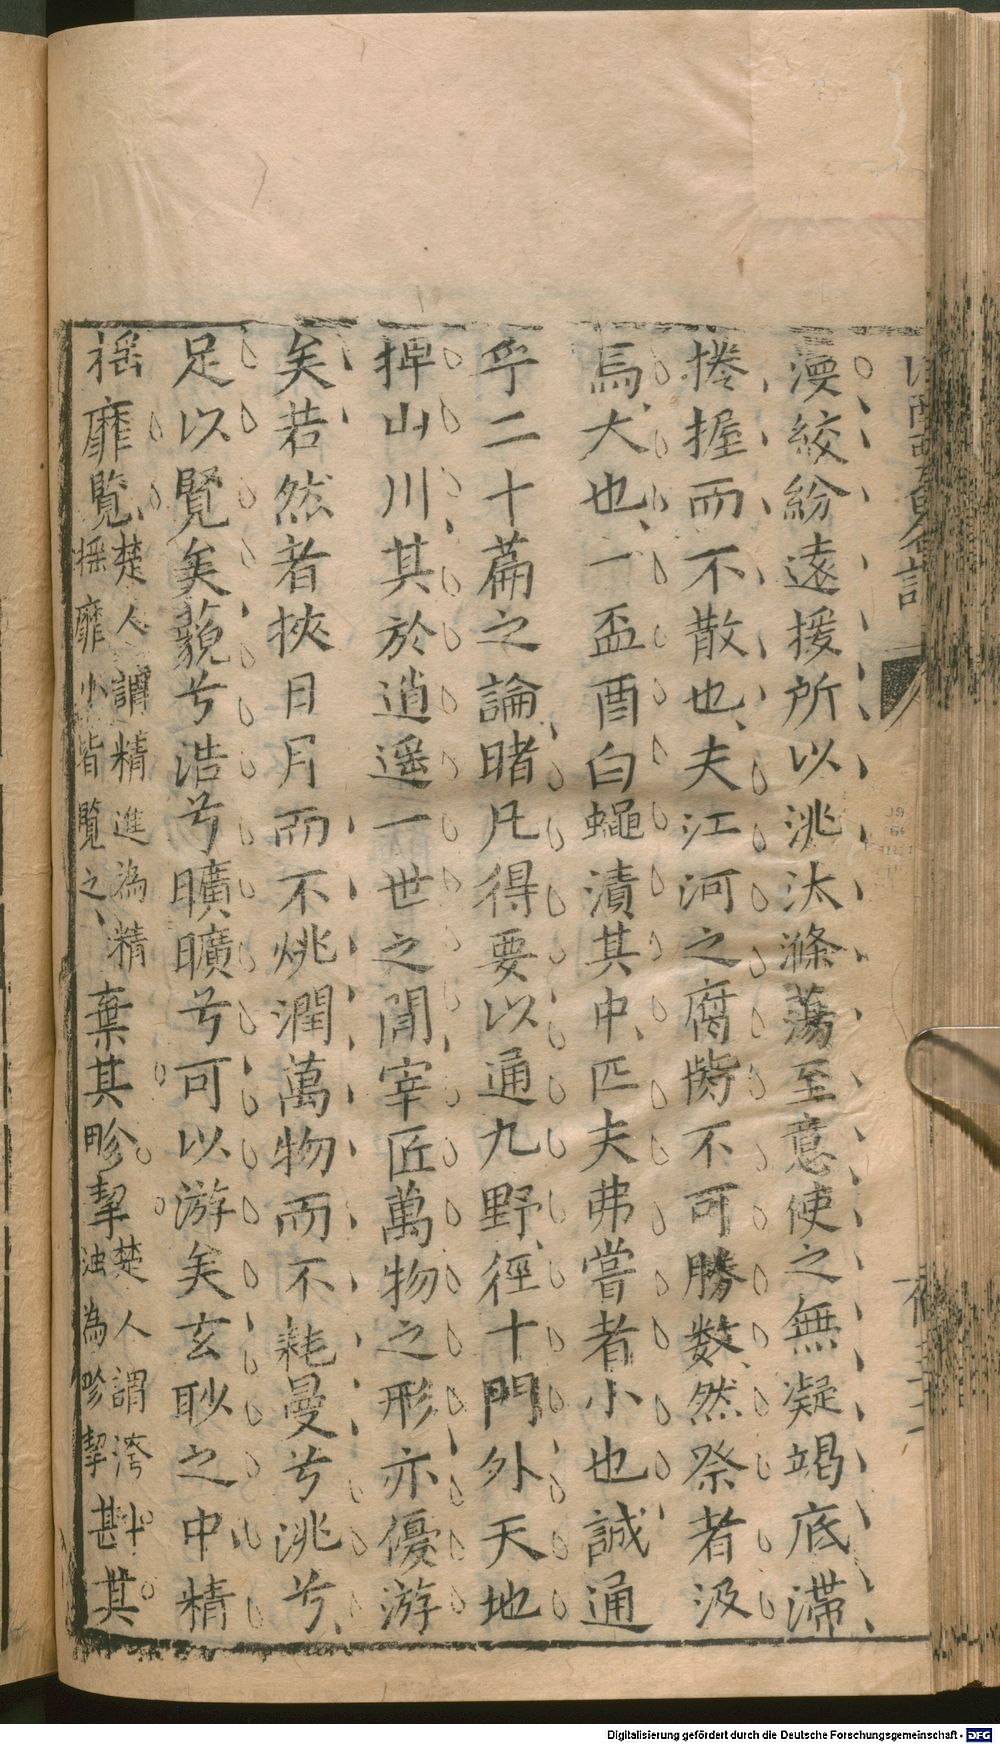 漫絞紛遠援所以洮汰滌蕩至意使之無凝竭底滯
捲握而不散也夫江河之腐胔不可勝數然祭者汲
焉大也一盃酉白蠅漬其中匹夫弗嘗者小也誠通
乎二十篇之論睹凡得要以通九野徑十門外天地
捭山川其於逍遥一世之間宰匠萬物之形亦優游
矣若然者挾日月而不烑潤萬物而不耗曼兮洮兮
足以覽矣藐兮浩兮曠曠兮可以游矣玄眇之中精
摇靡覧楚人謂精進為精摇靡小皆覽之棄其畛挈楚人謂澤濁為畛挈斟其
Digitalisierung gefördert durch die Deutsche Forschungsgemeinschaft - DFG